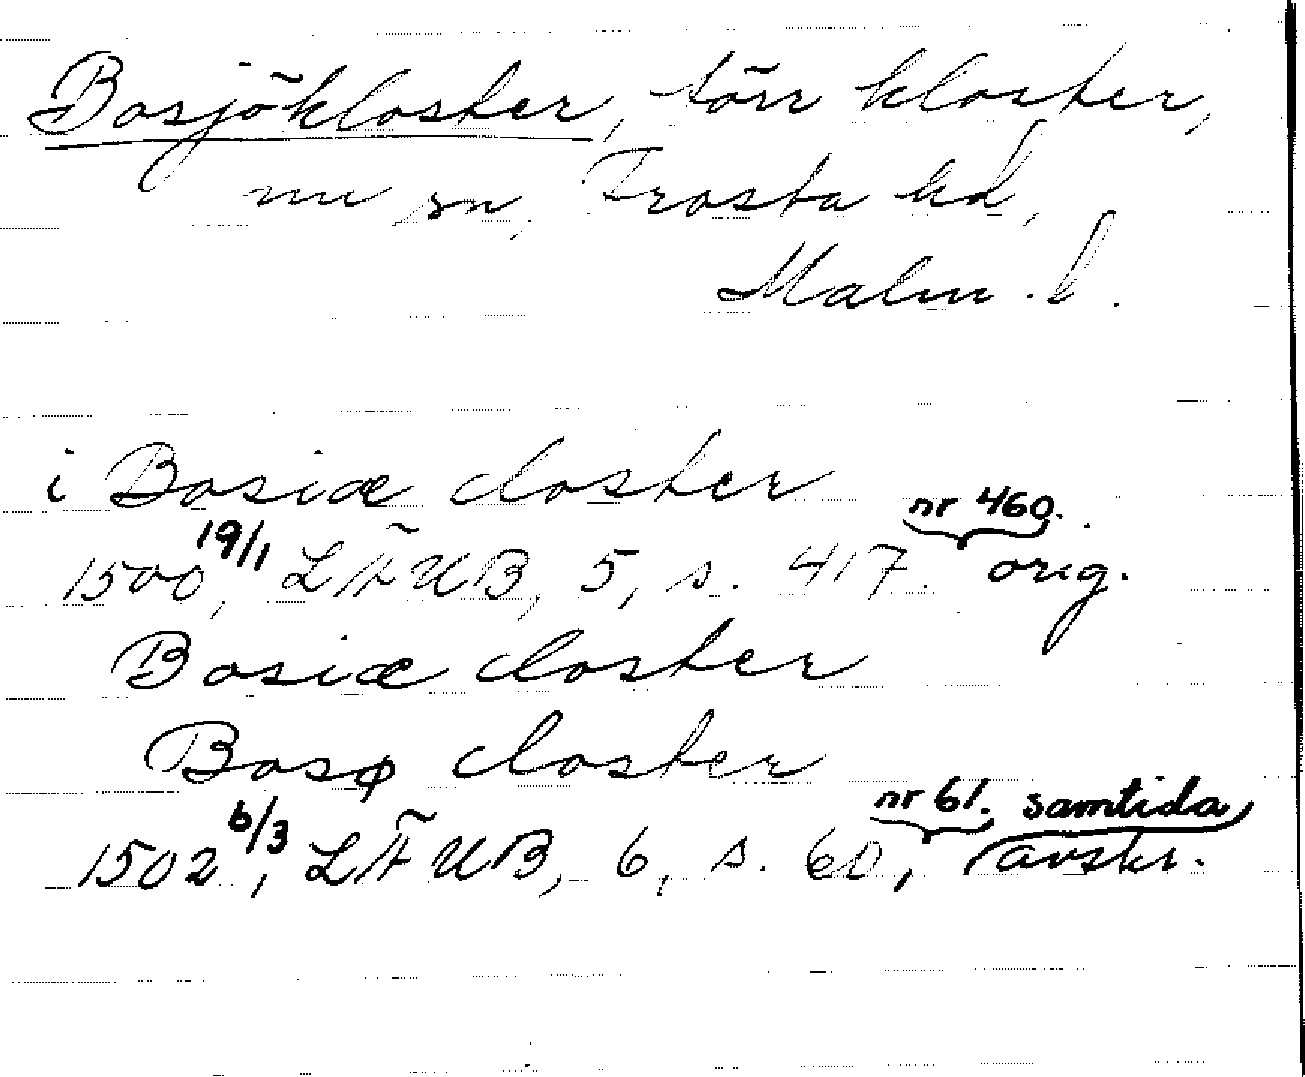 Bosjökloster, förr kloster,
nu sn, Frosta hd,
Malm. l.
i Bosiæ closter
1500 19/1, LÄUB, 5, s. 417. nr 460. orig.
Bosiæ closter
Bosø closter
1502 6/3, LÄUB, 6, s. 60, nr 61. samtida
avskr.